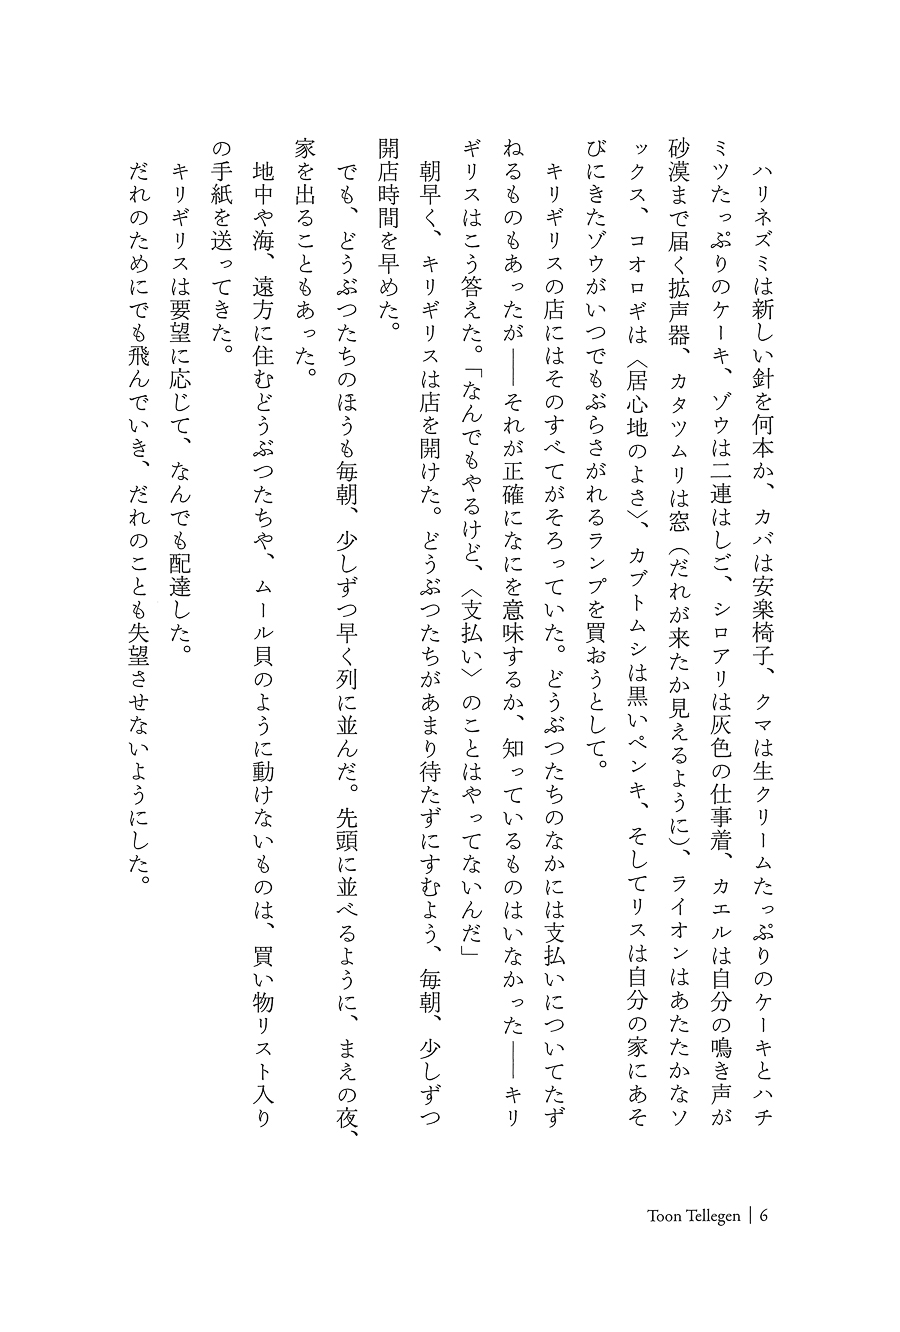 ハリネズミは新しい針を何本か、カバは安楽椅子、クマは生クリームたっぷりのケーキとハチ
ミツたっぷりのケーキ、ゾウは二連はしご、シロアリは灰色の仕事着、カエルは自分の鳴き声が
砂漠まで届く拡声器、カタツムリは窓（だれが来たか見えるように）、ライオンはあたたかなソ
ックス、コオロギは〈居心地のよさ〉、カブトムシは黒いペンキ、そしてリスは自分の家にあそ
びにきたゾウがいつでもぶらさがれるランプを買おうとして。
キリギリスの店にはそのすべてがそろっていた。どうぶつたちのなかには支払いについてたず
ねるものもあったが――それが正確になにを意味するか、知っているものはいなかった――キリ
ギリスはこう答えた。「なんでもやるけど、〈支払い〉のことはやってないんだ」
朝早く、キリギリスは店を開けた。どうぶつたちがあまり待たずにすむよう、毎朝、少しずつ
開店時間を早めた。
でも、どうぶつたちのほうも毎朝、少しずつ早く列に並んだ。先頭に並べるように、まえの夜、
家を出ることもあった。
地中や海、遠方に住むどうぶつたちや、ムール貝のように動けないものは、買い物リスト入り
の手紙を送ってきた。
キリギリスは要望に応じて、なんでも配達した。
だれのためにでも飛んでいき、だれのことも失望させないようにした。
Toon Tellegen | 6